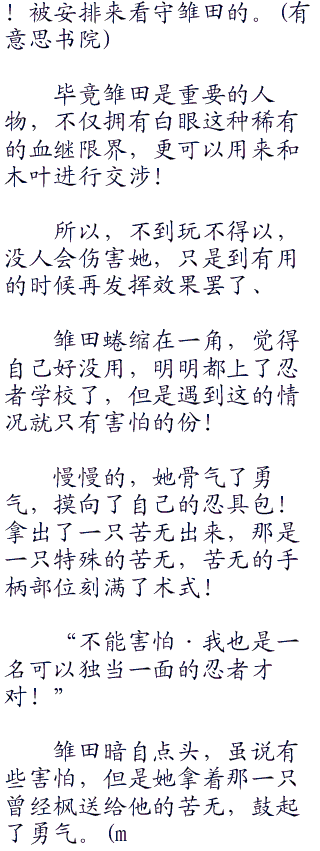 ！被安排来看守雏田的。(有
意思书院)
毕竟雏田是重要的人
物，不仅拥有白眼这种稀有
的血继限界，更可以用来和
木叶进行交涉！
所以，不到玩不得以，
没人会伤害她，只是到有用
的时候再发挥效果罢了、
雏田蜷缩在一角，觉得
自己好没用，明明都上了忍
者学校了，但是遇到这的情
况就只有害怕的份！
慢慢的，她骨气了勇
气，摸向了自己的忍具包！
拿出了一只苦无出来，那是
一只特殊的苦无，苦无的手
柄部位刻满了术式！
“不能害怕·我也是一
名可以独当一面的忍者才
对！”
雏田暗自点头，虽说有
些害怕，但是她拿着那一只
曾经枫送给他的苦无，鼓起
了勇气。(m